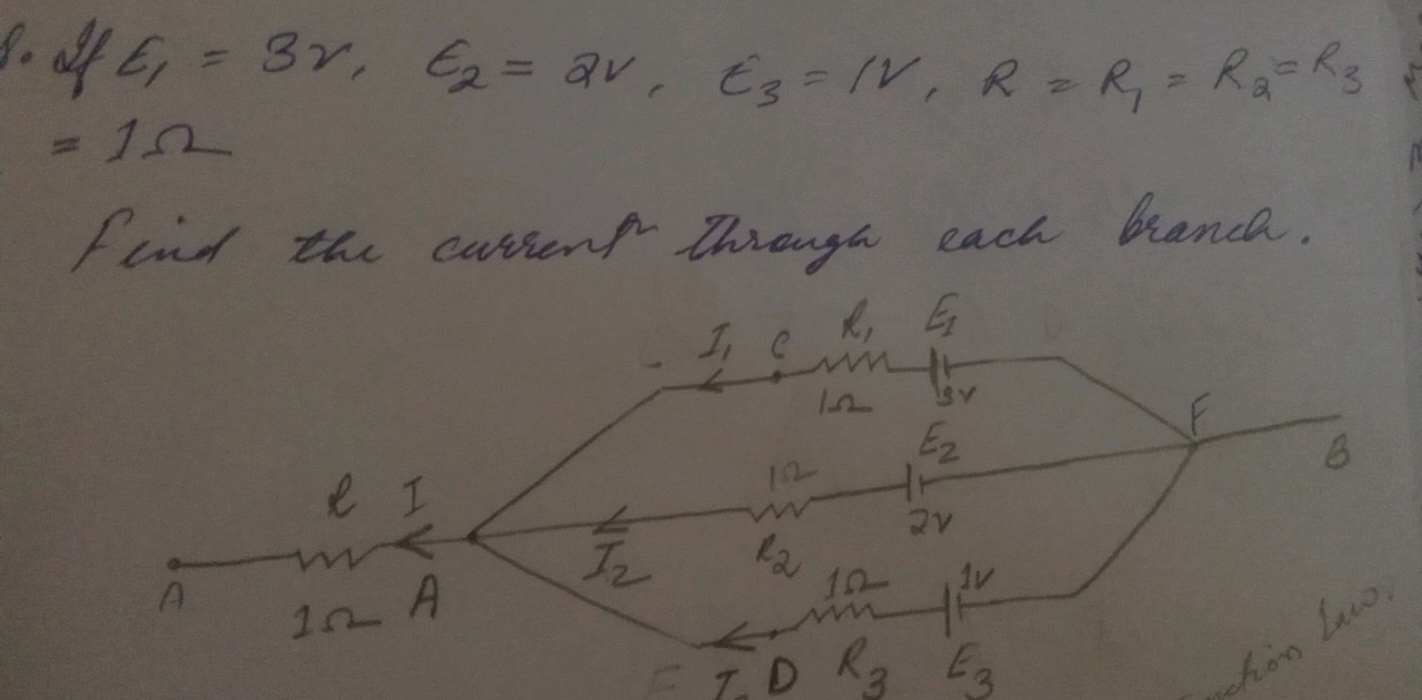 8. If E₁ = 3V, E₂ = 2V, E₃ = 1V, R = R₁ = R₂ = R₃
= 1Ω
Find the current through each branch.
I₁ C R₁ E₁
1Ω 3V
F
E₂
B
R I
1Ω
2V
I₂ R₂
A
1Ω A
1Ω 1V
D R₃ E₃
Law.